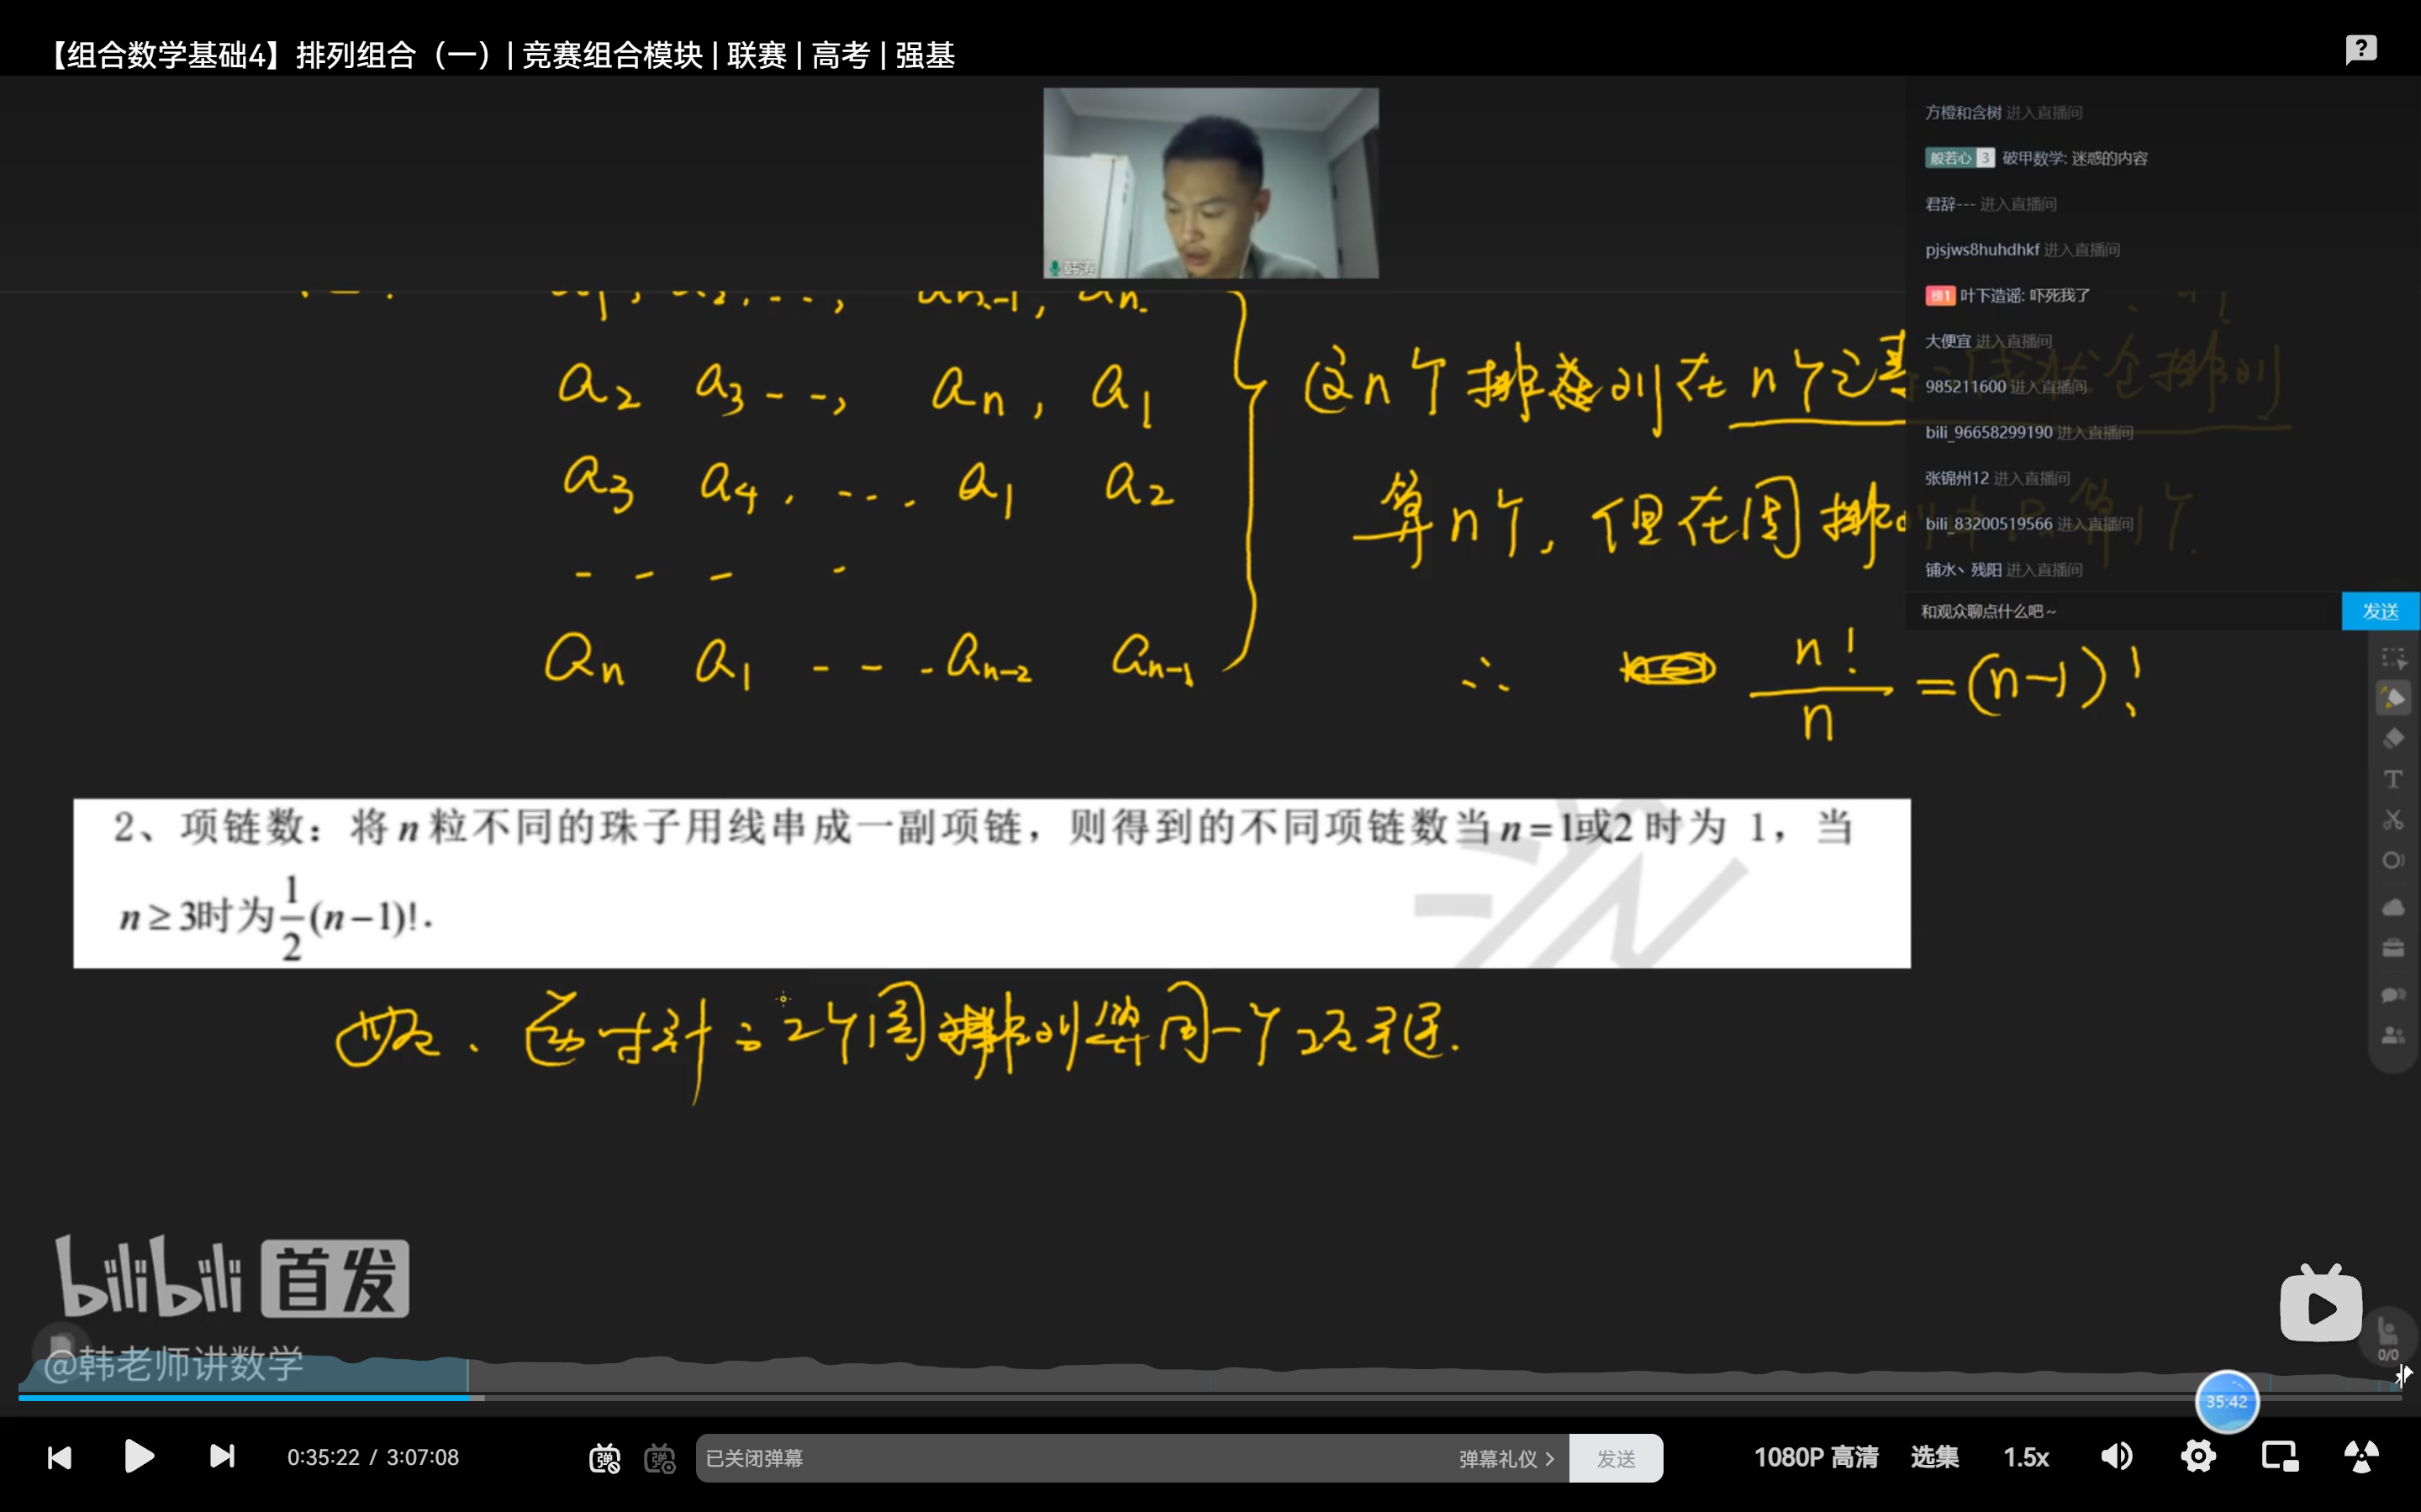 【组合数学基础4】排列组合（一）| 竞赛组合模块 | 联赛 | 高考 | 强基
韩涛
方橙和含树 进入直播间
般若心 3 破甲数学: 迷惑的内容
君辞--- 进入直播间
pjsjws8huhdhkf 进入直播间
榜1 叶下造谣: 吓死我了
大便宜 进入直播间
985211600 进入直播间
bili_96658299190 进入直播间
张锦州12 进入直播间
bili_83200519566 进入直播间
铺水丶残阳 进入直播间
和观众聊点什么吧～
发送
a₁, a₂, ..., aₙ₋₁, aₙ.
a₂ a₃ --, aₙ, a₁
a₃ a₄, ---. a₁ a₂
- - - -
aₙ a₁ - - - aₙ₋₂ aₙ₋₁
这n个排列在n个元素
算n个，但在圆排列中只算1个.
∴ n!/n = (n-1)!
2、项链数：将 n 粒不同的珠子用线串成一副项链，则得到的不同项链数当 n=1或2 时为 1，当
n≥3时为 1/2 (n-1)!.
2个圆排列算同一个
bilibili 首发
@韩老师讲数学
0/0
35:42
0:35:22 / 3:07:08
弹
弹
已关闭弹幕
弹幕礼仪 >
发送
1080P 高清
选集
1.5x